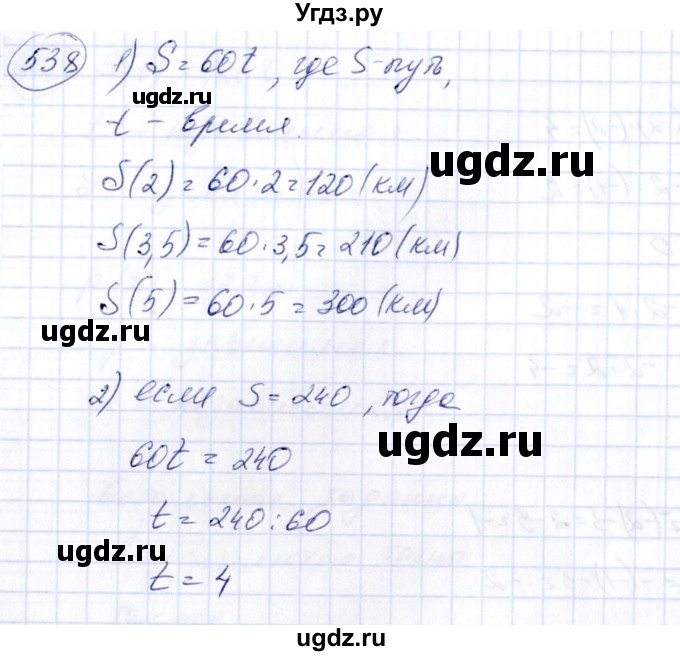 Угдз.ру
538 1) S = 60t, где S - путь,
ugdz.ru
t - время.
ugdz.ru
S(2) = 60·2 = 120 (км)
S(3,5) = 60·3,5 = 210 (км)
S(5) = 60·5 = 300 (км)
ugdz.ru
2) если S = 240, тогда
ugdz.ru
60t = 240
t = 240:60
ugdz.ru
t = 4
ugdz.ru